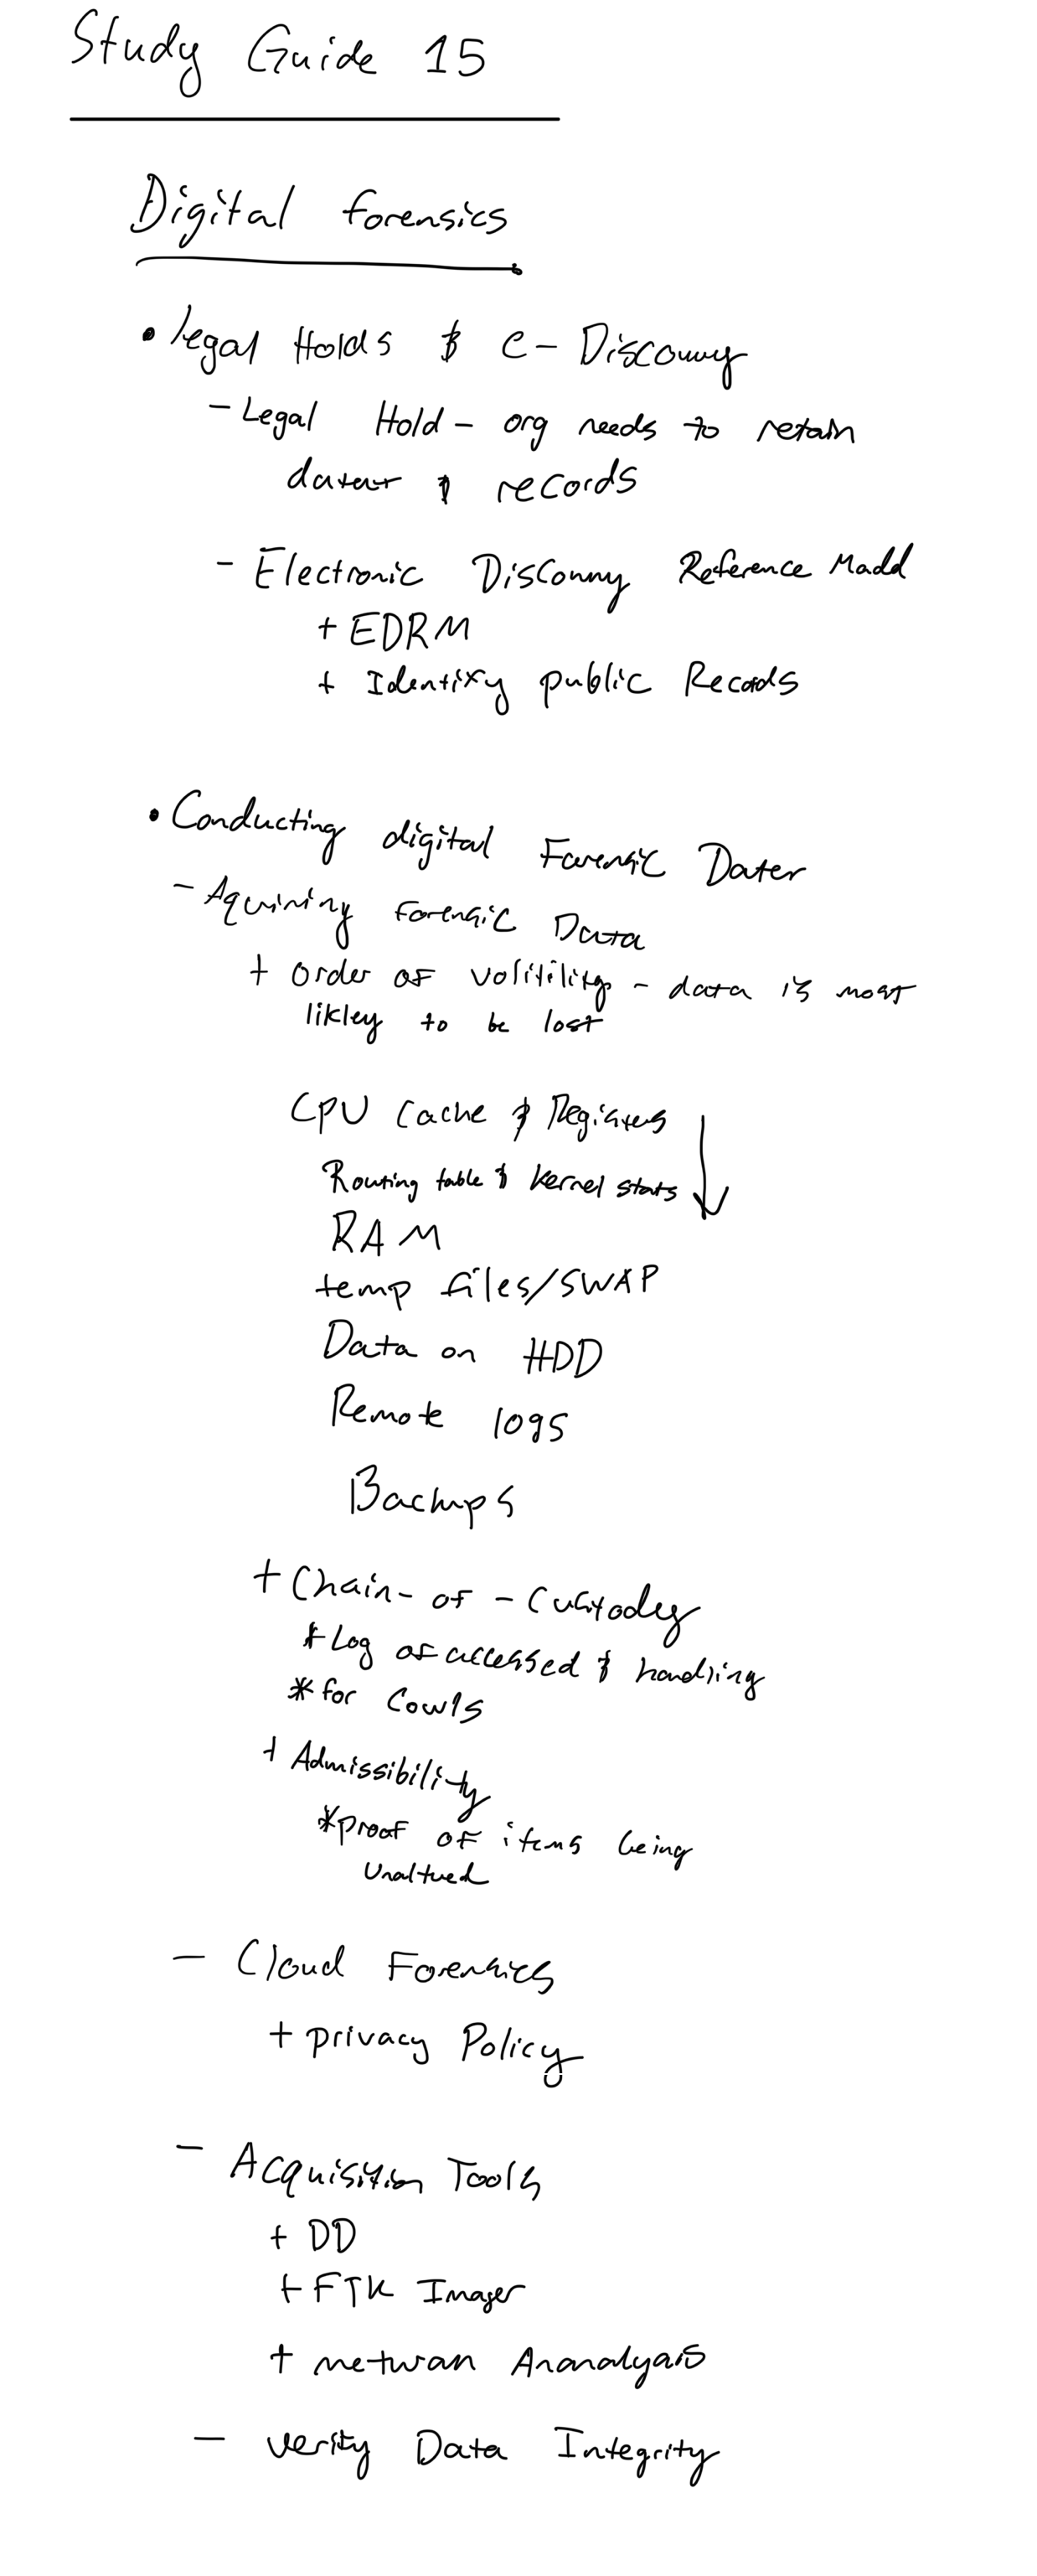 Study Guide 15
Digital forensics
• Legal Holds & e-Discovery
- Legal Hold - org needs to retain
data & records
- Electronic Discovery Reference Model
+ EDRM
+ Identify public Records
• Conducting digital Forensic Data
- Aquiring Forensic Data
+ order of volitility - data is most
likley to be lost
CPU Cache & Registers
Routing table & kernel stats
RAM
temp files/SWAP
Data on HDD
Remote logs
Backups
+ Chain-of-Custody
* Log of accessed & handling
* for Courts
+ Admissibility
* proof of items being
unaltered
- Cloud Forensics
+ privacy Policy
- Acquisition Tools
+ DD
+ FTK Imager
+ network Ananalyais
- verify Data Integrity